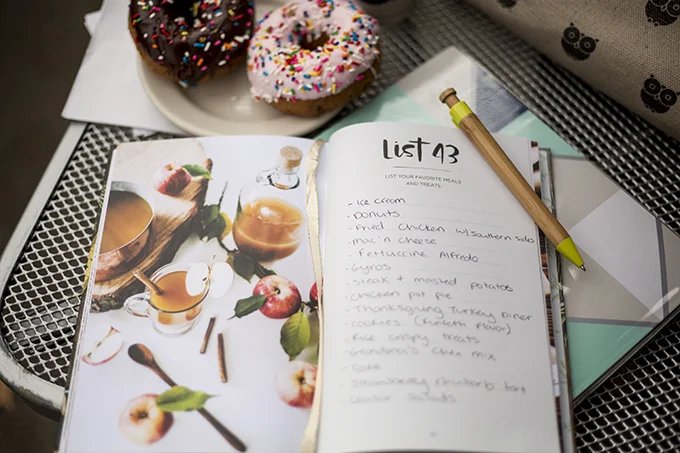 LIST 43
LIST YOUR FAVORITE MEALS
AND TREATS.
- Ice cream
- Donuts
- Fried Chicken w/southern sides
- mac 'n cheese
- Fettuccine Alfredo
- Gyros
- steak + mashed potatoes
- chicken pot pie
- Thanksgiving Turkey Dinner
- cookies (funfetti flavor)
- Rice crispy treats
- Grandma's Chex mix
- cake
- strawberry rhubarb tart
- salads